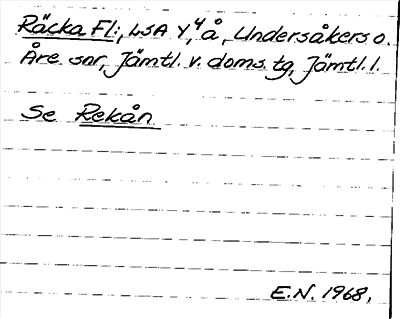 Räcka Fl:, LSA Y,4 å, Undersåkers o.
Åre snr, Jämtl. v. doms. tg, Jämtl. l.
Se Rekån
E.N. 1968.